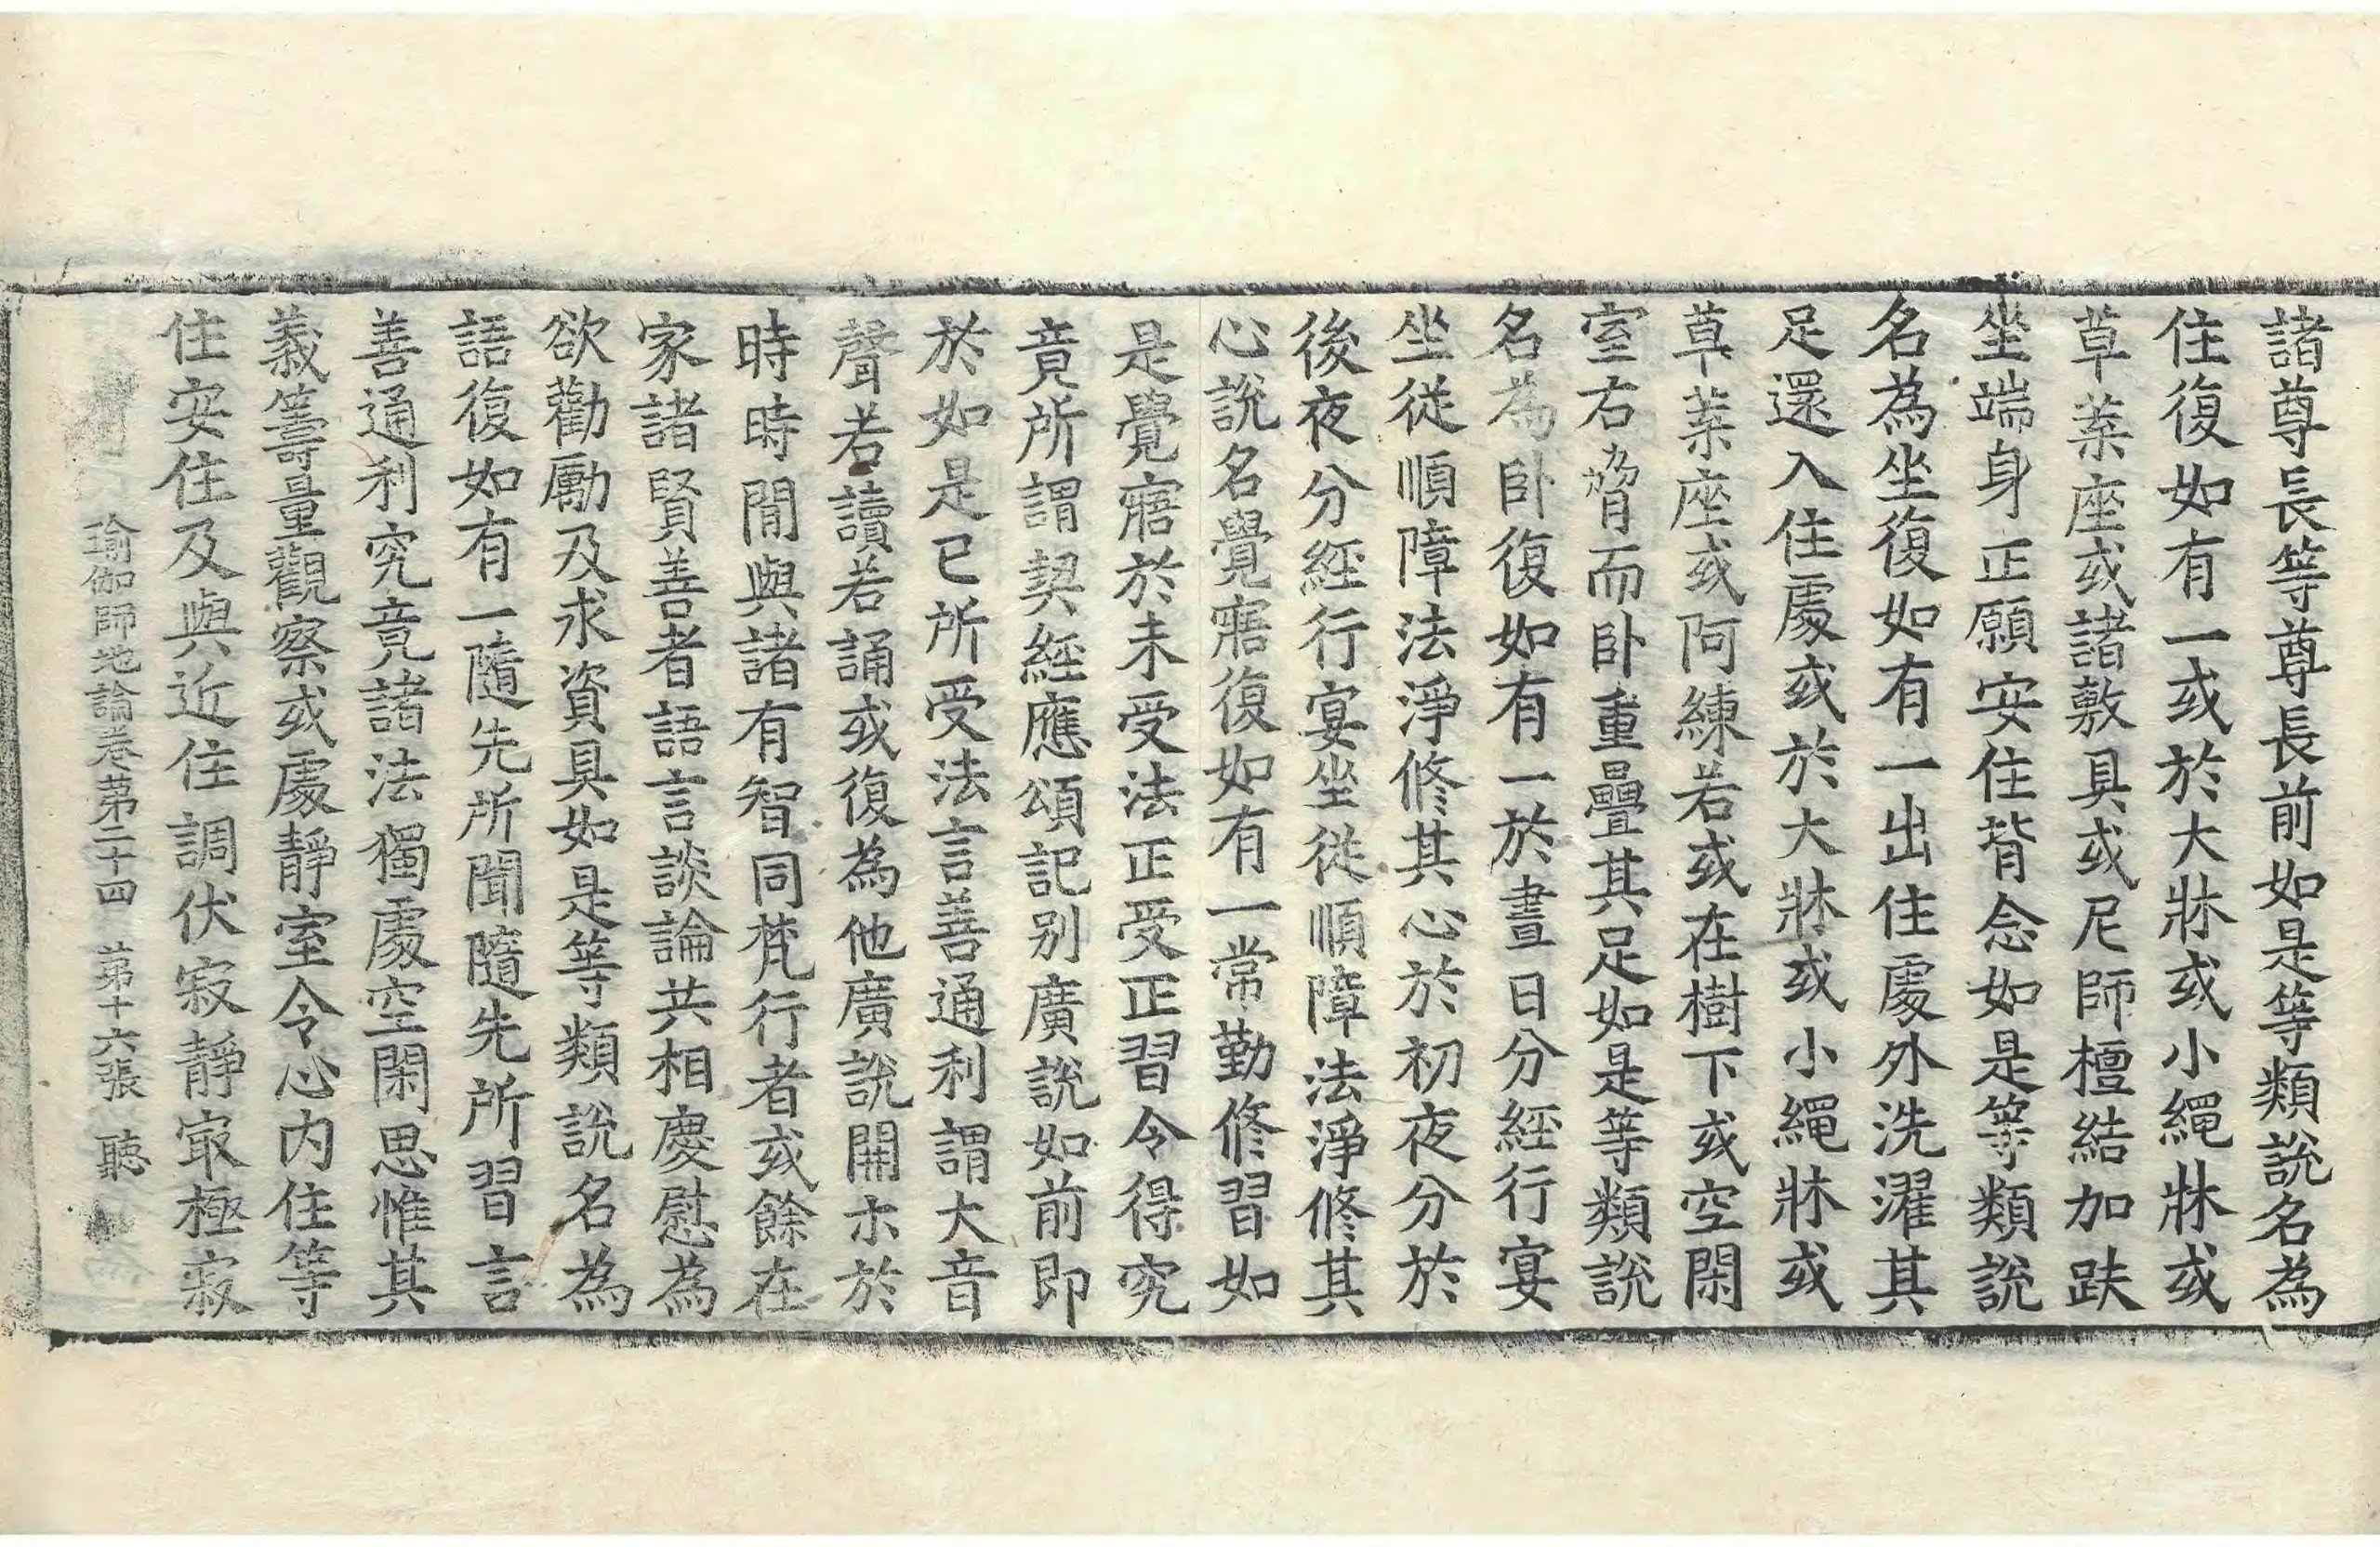 諸尊長等尊長前如是等類說名為
住復如有一或於大牀或小繩牀或
草葉座或諸敷具或尼師檀結加趺
坐端身正願安住背念如是等類說
名為坐復如有一出住處外洗濯其
足還入住處或於大牀或小繩牀或
草葉座或阿練若或在樹下或空閑
室右脅而卧重疊其足如是等類說
名為卧復如有一於晝日分經行宴
坐從順障法淨修其心於初夜分於
後夜分經行宴坐從順障法淨修其
心說名覺寤復如有一常勤修習如
是覺寤於未受法正受正習令得究
竟所謂契經應頌記別廣說如前即
於如是已所受法言善通利謂大音
聲若讀若誦或復為他廣說開示於
時時間與諸有智同梵行者或餘在
家諸賢善者語言談論共相慶慰為
欲勸勵及求資具如是等類說名為
語復如有一隨先所聞隨先所習言
善通利究竟諸法獨處空閑思惟其
義籌量觀察或處靜室令心內住等
住安住及與近住調伏寂靜㝡極寂
瑜伽師地論卷第二十四 第十六張 聽